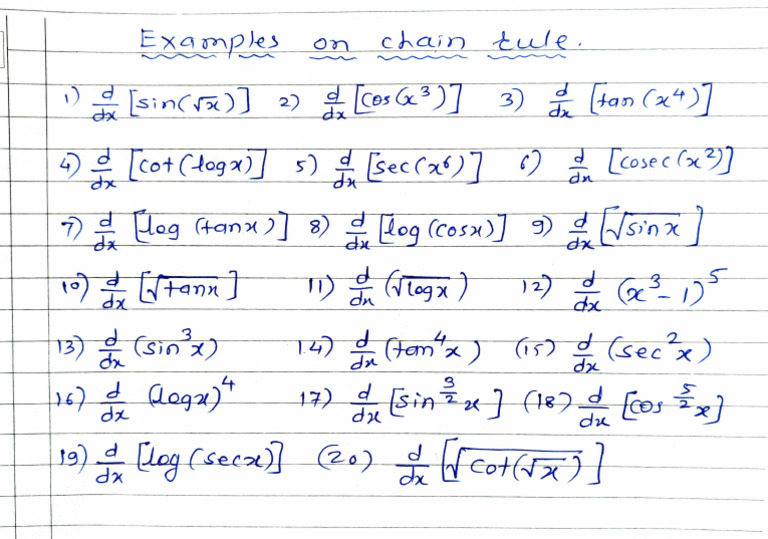 Examples on chain rule.
1) d/dx [sin(√x)] 2) d/dx [cos(x³)] 3) d/dx [tan(x⁴)]
4) d/dx [cot(logx)] 5) d/dx [sec(x⁶)] 6) d/dx [cosec(x²)]
7) d/dx [log(tanx)] 8) d/dx [log(cosx)] 9) d/dx [√sinx]
10) d/dx [√tanx] 11) d/dx (√logx) 12) d/dx (x³-1)⁵
13) d/dx (sin³x) 14) d/dx (tan⁴x) (15) d/dx (sec²x)
16) d/dx (logx)⁴ 17) d/dx [sin^(3/2) x] (18) d/dx [cos^(5/2) x]
19) d/dx [log(secx)] (20) d/dx [√(cot(√x))]